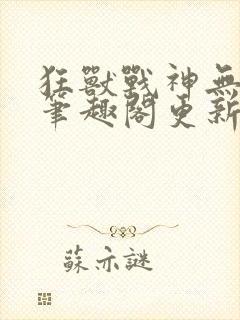 狂獸戰神無
筆趣閣更新
蘇亦謎